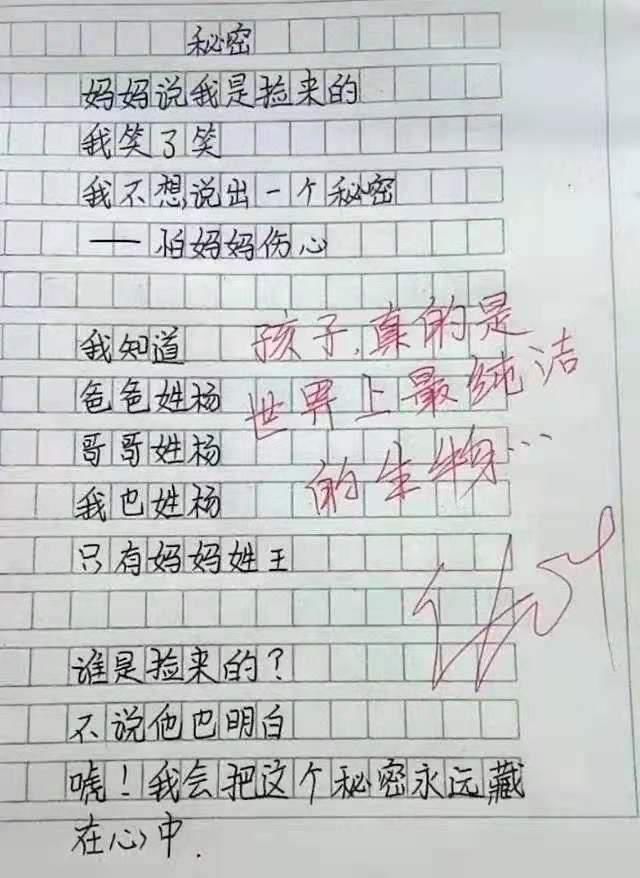 秘密
妈妈说我是捡来的
我笑了笑
我不想说出一个秘密
——怕妈妈伤心
我知道
爸爸姓杨
哥哥姓杨
我也姓杨
只有妈妈姓王
谁是捡来的?
不说他也明白
唬!我会把这个秘密永远藏
在心中.
孩子,真的是
世界上最纯洁
的生物…